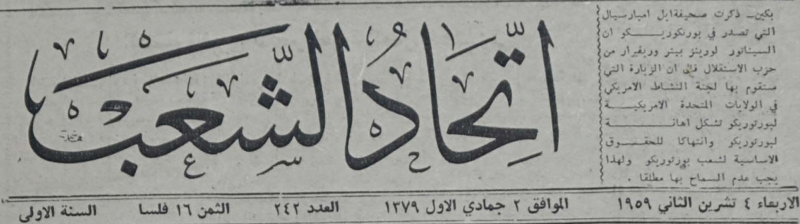 اتحاد الشعب
بكين ـ ذكرت صحيفة ايل امبارسيال
التي تصدر في بورتوريكو ان
السيناتور لورينز بيتر وريفيرار من
حزب الاستقلال قال ان الزيارة التي
ستقوم بها لجنة النشاط الامريكي
في الولايات المتحدة الامريكية
لبورتوريكو تشكل اهانة
لبورتوريكو وانتهاكا للحقوق
الاساسية لشعب بورتوريكو ولهذا
يجب عدم السماح بها مطلقا .
الاربعاء ٤ تشرين الثاني ١٩٥٩ الموافق ٢ جمادي الاول ١٣٧٩ العدد ٢٤٢ الثمن ١٦ فلسا السنة الاولى